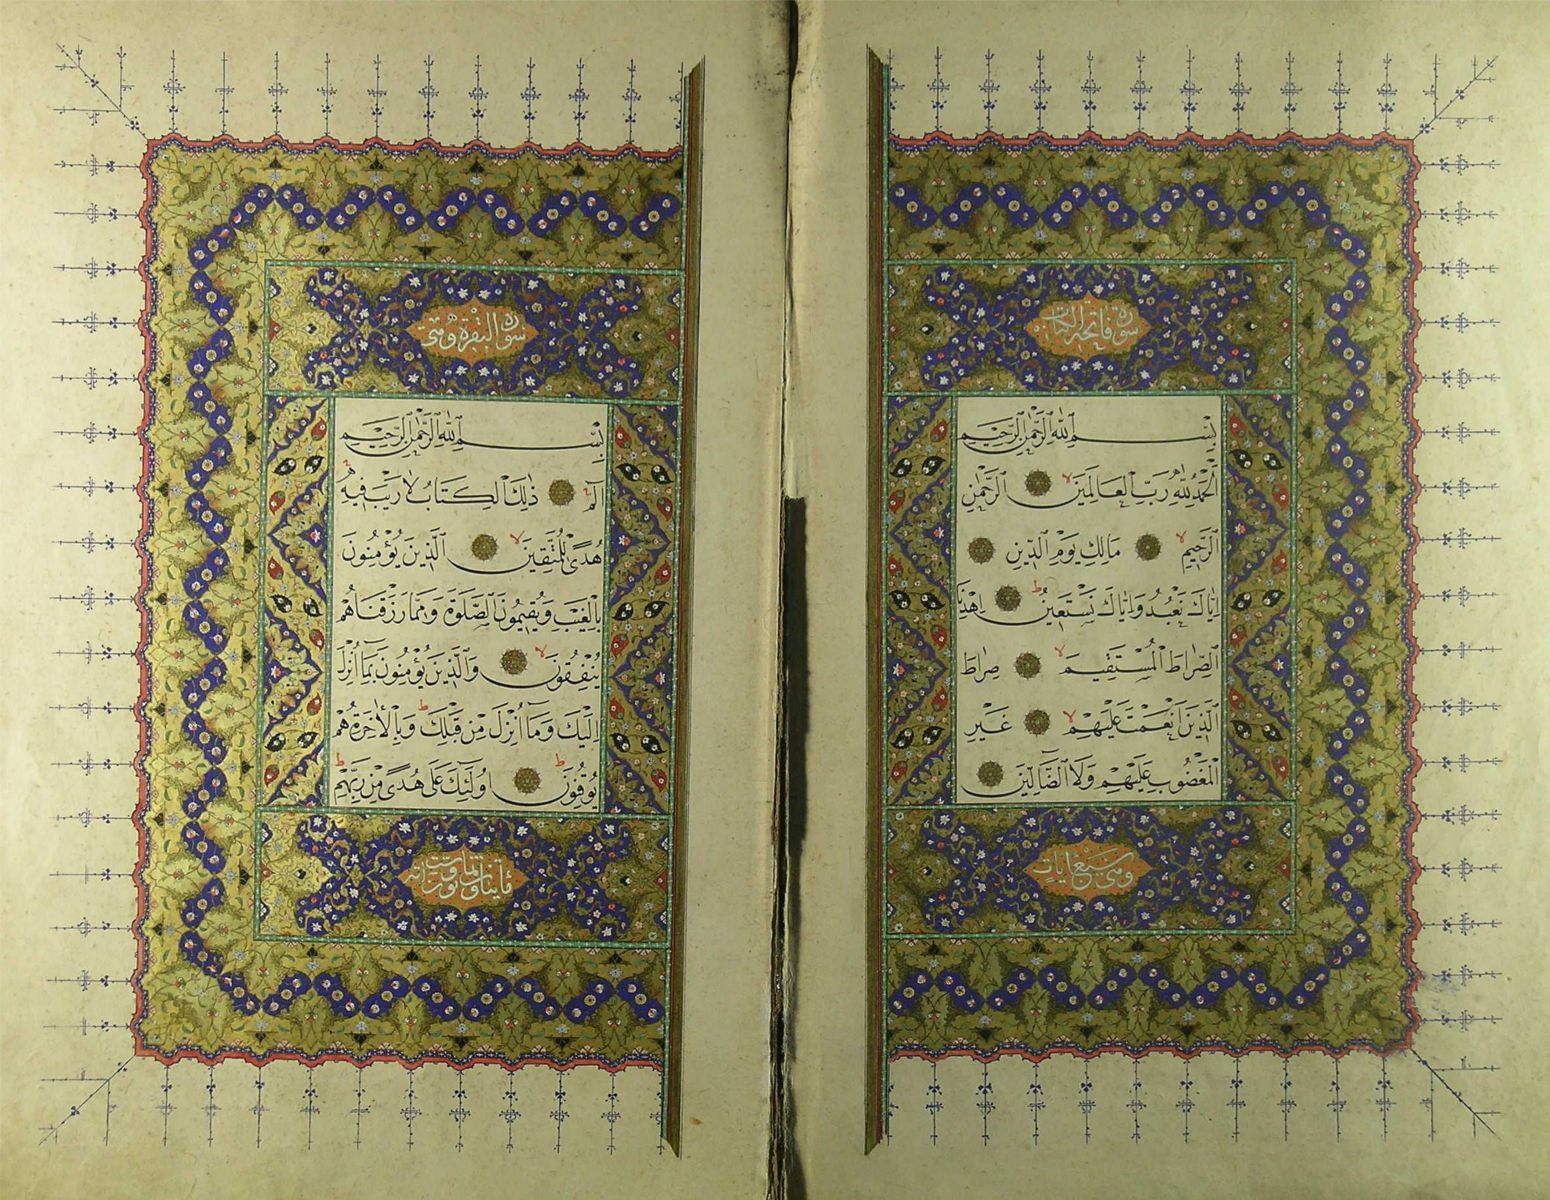 سورة فاتحة الكتاب
بِسْمِ اللّٰهِ الرَّحْمٰنِ الرَّحِيمِ
اَلْحَمْدُ لِلّٰهِ رَبِّ الْعَالَمِينَ ۙ اَلرَّحْمٰنِ
الرَّحِيمِ ۙ مَالِكِ يَوْمِ الدِّينِ
اِيَّاكَ نَعْبُدُ وَاِيَّاكَ نَسْتَعِينُ ۗ اِهْدِنَا
الصِّرَاطَ الْمُسْتَقِيمَ ۙ صِرَاطَ
الَّذِينَ اَنْعَمْتَ عَلَيْهِمْ ۙ غَيْرِ
الْمَغْضُوبِ عَلَيْهِمْ وَلَا الضَّالِّينَ
وهي سبع ايات
سورة البقرة وهي
بِسْمِ اللّٰهِ الرَّحْمٰنِ الرَّحِيمِ
الٓمٓ ذٰلِكَ الْكِتَابُ لَا رَيْبَ فِيهِ
هُدًى لِلْمُتَّقِينَ ۙ اَلَّذِينَ يُؤْمِنُونَ
بِالْغَيْبِ وَيُقِيمُونَ الصَّلٰوةَ وَمِمَّا رَزَقْنَاهُمْ
يُنْفِقُونَ ۙ وَالَّذِينَ يُؤْمِنُونَ بِمَا اُنْزِلَ
اِلَيْكَ وَمَا اُنْزِلَ مِنْ قَبْلِكَ ۚ وَبِالْاٰخِرَةِ هُمْ
يُوقِنُونَ ۗ اُولٰئِكَ عَلٰى هُدًى مِنْ رَبِّهِمْ
مأيتان وثمانون وست